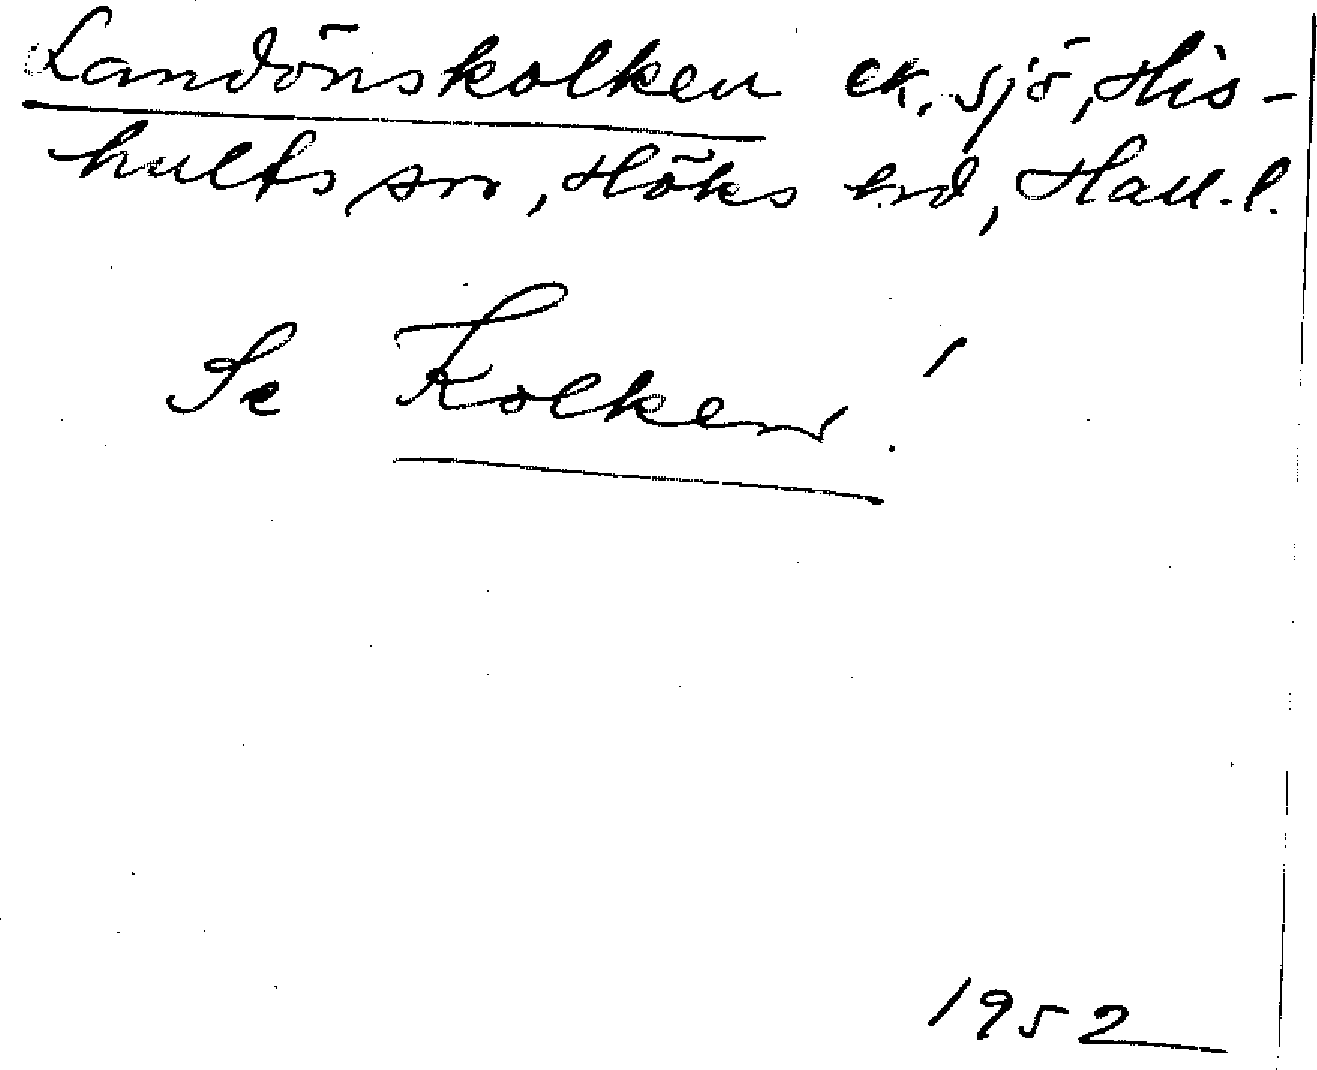 Landönskolken ek. sjö, His-
hults sn, Höks hd, Hall. l.
Se Kolken!
1952